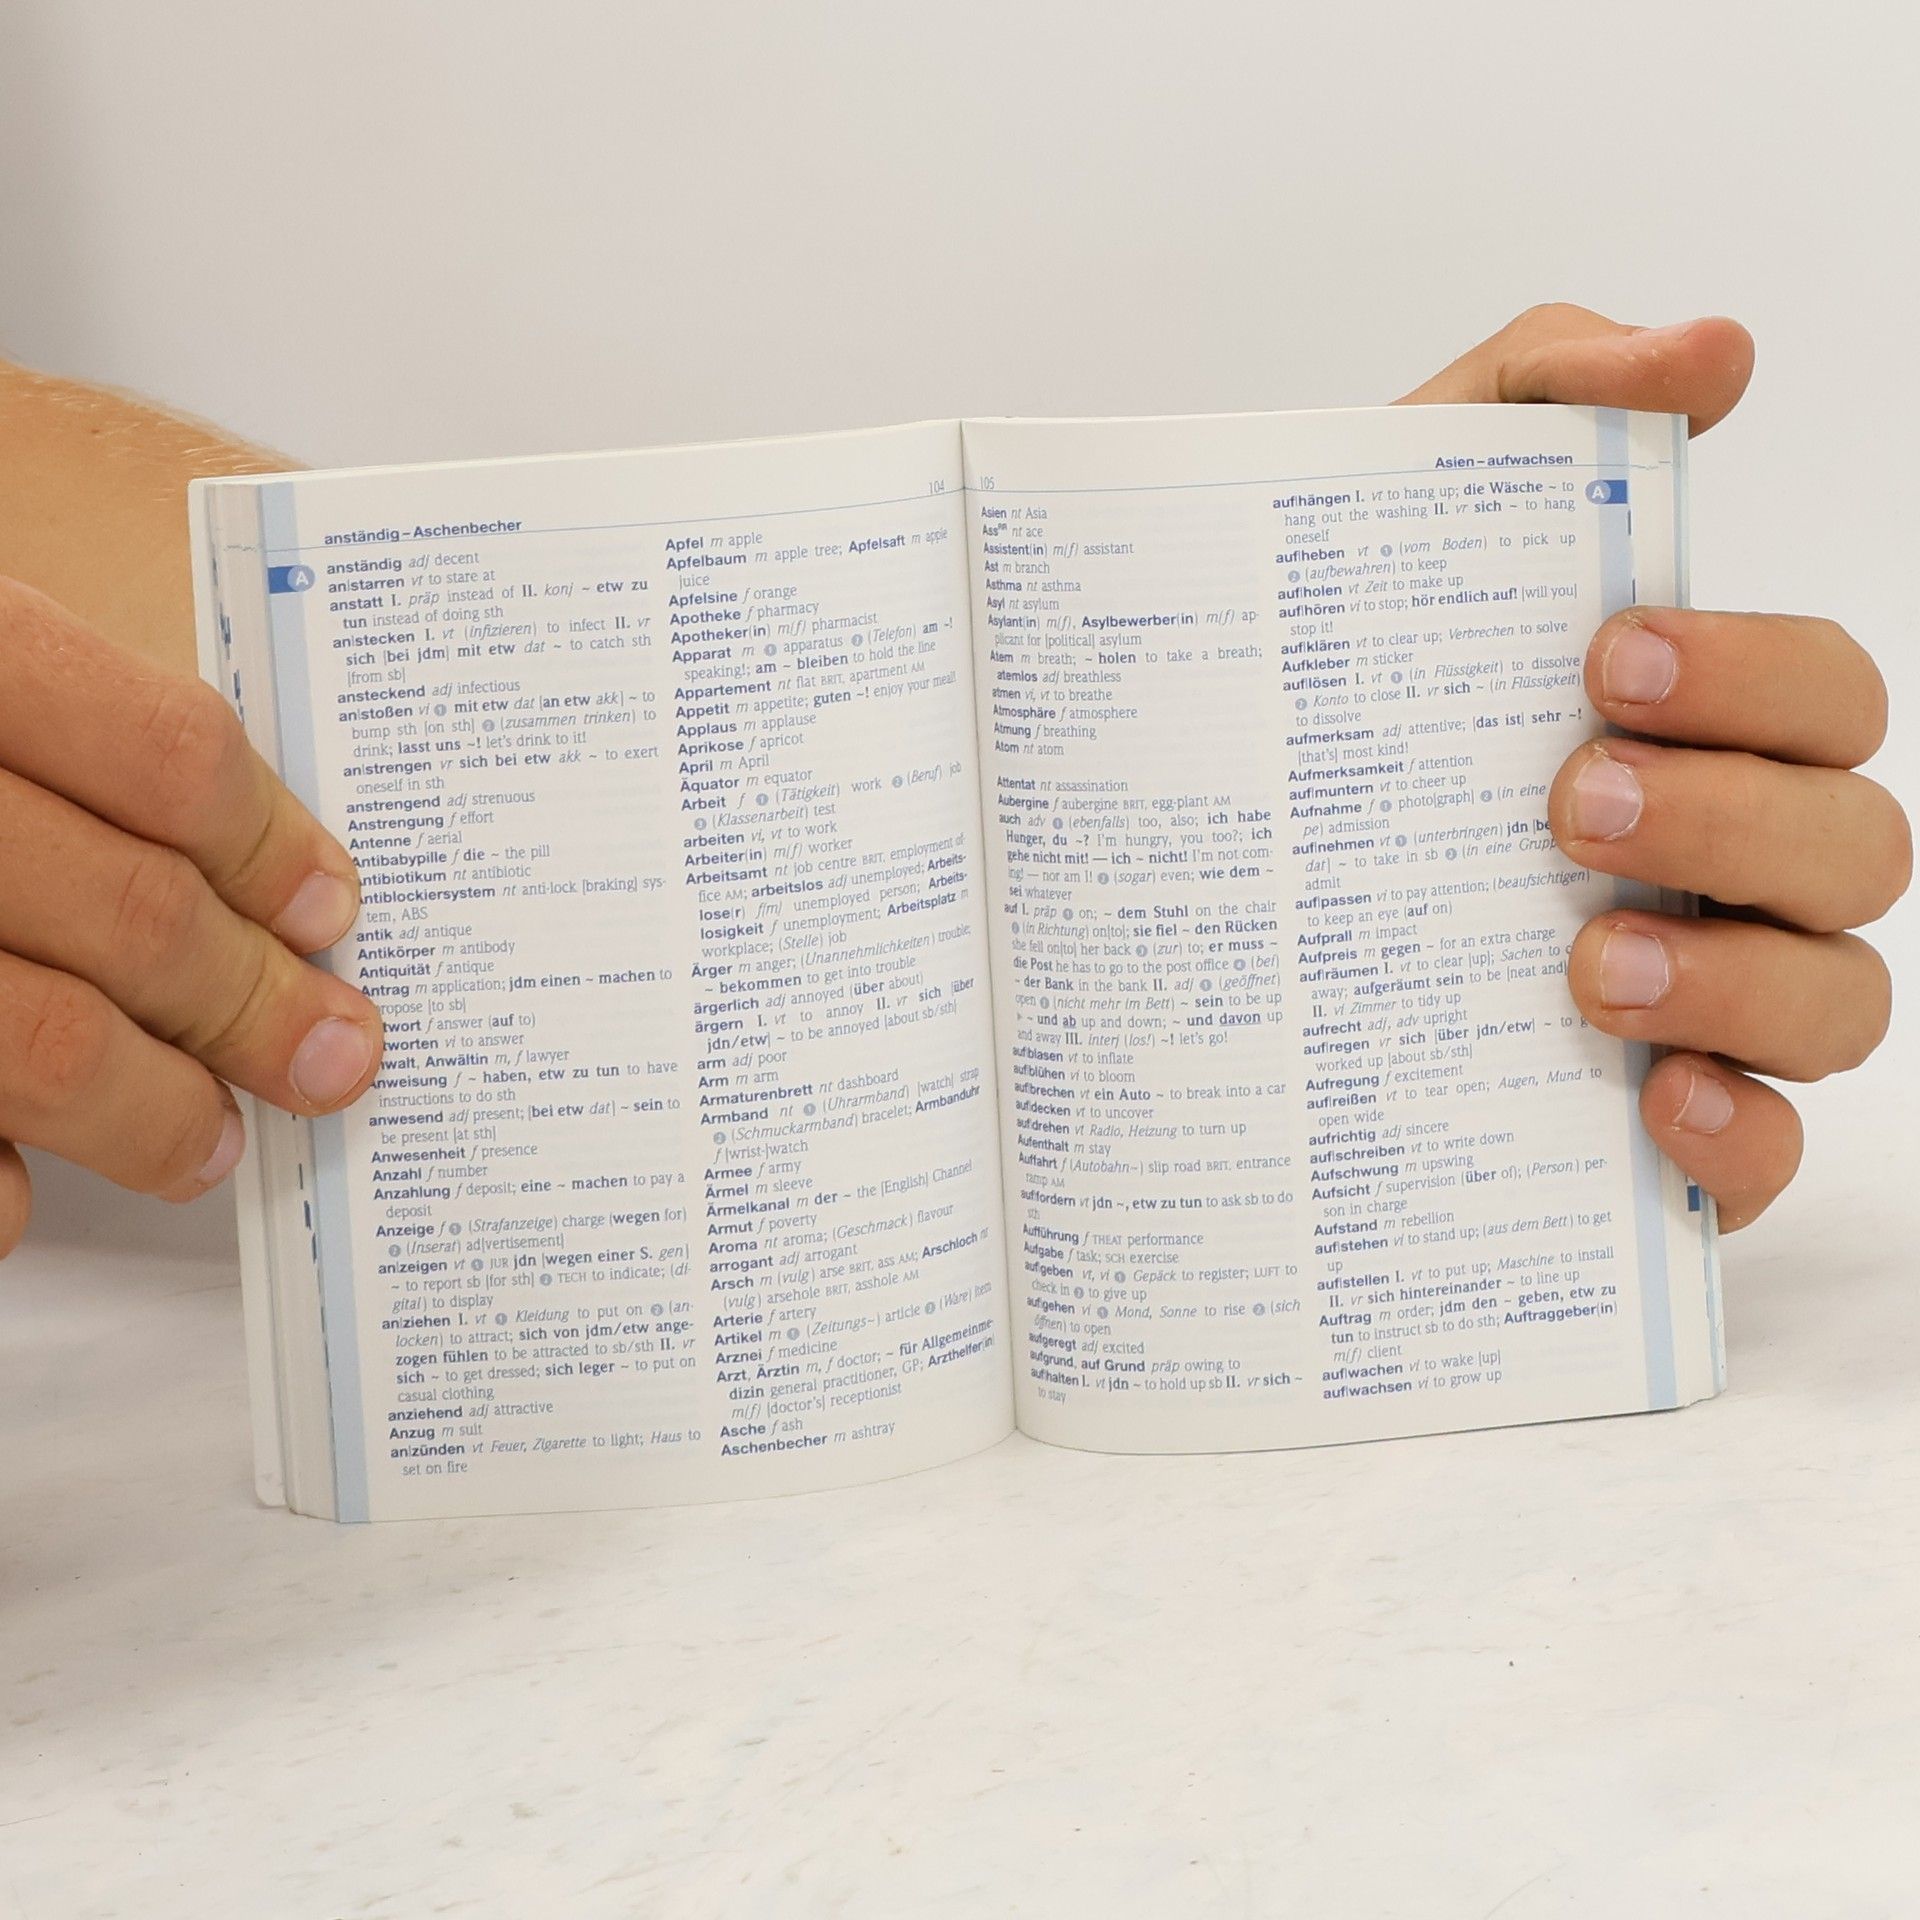 anständig–Aschenbecher
104
A
anständig adj decent
an|starren vt to stare at
anstatt I. präp instead of II. konj ~ etw zu
tun instead of doing sth
an|stecken I. vt (infizieren) to infect II. vr
sich [bei jdm] mit etw dat ~ to catch sth
[from sb]
ansteckend adj infectious
an|stoßen vi ❶ mit etw dat [an etw akk] ~ to
bump sth [on sth] ❷ (zusammen trinken) to
drink; lasst uns ~! let's drink to it!
an|strengen vr sich bei etw akk ~ to exert
oneself in sth
anstrengend adj strenuous
Anstrengung f effort
Antenne f aerial
Antibabypille f die ~ the pill
ntibiotikum nt antibiotic
ntiblockiersystem nt anti-lock [braking] sys-
tem, ABS
antik adj antique
Antikörper m antibody
Antiquität f antique
Antrag m application; jdm einen ~ machen to
ropose [to sb]
twort f answer (auf to)
tworten vi to answer
nwalt, Anwältin m, f lawyer
Anweisung f ~ haben, etw zu tun to have
instructions to do sth
anwesend adj present; [bei etw dat] ~ sein to
be present [at sth]
Anwesenheit f presence
Anzahl f number
Anzahlung f deposit; eine ~ machen to pay a
deposit
Anzeige f ❶ (Strafanzeige) charge (wegen for)
❷ (Inserat) ad[vertisement]
an|zeigen vt ❶ JUR jdn [wegen einer S. gen]
~ to report sb [for sth] ❷ TECH to indicate; (di-
gital) to display
an|ziehen I. vt ❶ Kleidung to put on ❷ (an-
locken) to attract; sich von jdm/etw ange-
zogen fühlen to be attracted to sb/sth II. vr
sich ~ to get dressed; sich leger ~ to put on
casual clothing
anziehend adj attractive
Anzug m suit
an|zünden vt Feuer, Zigarette to light; Haus to
set on fire
Apfel m apple
Apfelbaum m apple tree; Apfelsaft m apple
juice
Apfelsine f orange
Apotheke f pharmacy
Apotheker(in) m(f) pharmacist
Apparat m ❶ apparatus ❷ (Telefon) am ~!
speaking!; am ~ bleiben to hold the line
Appartement nt flat BRIT, apartment AM
Appetit m appetite; guten ~! enjoy your meal!
Applaus m applause
Aprikose f apricot
April m April
Äquator m equator
Arbeit f ❶ (Tätigkeit) work ❷ (Beruf) job
❸ (Klassenarbeit) test
arbeiten vi, vt to work
Arbeiter(in) m(f) worker
Arbeitsamt nt job centre BRIT, employment of-
fice AM; arbeitslos adj unemployed; Arbeits-
lose(r) f(m) unemployed person; Arbeits-
losigkeit f unemployment; Arbeitsplatz m
workplace; (Stelle) job
Ärger m anger; (Unannehmlichkeiten) trouble;
~ bekommen to get into trouble
ärgerlich adj annoyed (über about)
ärgern I. vt to annoy II. vr sich [über
jdn/etw] ~ to be annoyed [about sb/sth]
arm adj poor
Arm m arm
Armaturenbrett nt dashboard
Armband nt ❶ (Uhrarmband) [watch] strap
❷ (Schmuckarmband) bracelet; Armbanduhr
f [wrist-]watch
Armee f army
Ärmel m sleeve
Ärmelkanal m der ~ the [English] Channel
Armut f poverty
Aroma nt aroma; (Geschmack) flavour
arrogant adj arrogant
Arsch m (vulg) arse BRIT, ass AM; Arschloch nt
(vulg) arsehole BRIT, asshole AM
Arterie f artery
Artikel m ❶ (Zeitungs~) article ❷ (Ware) item
Arznei f medicine
Arzt, Ärztin m, f doctor; ~ für Allgemeinme-
dizin general practitioner, GP; Arzthelfer(in)
m(f) [doctor's] receptionist
Asche f ash
Aschenbecher m ashtray
105
Asien–aufwachsen
A
Asien nt Asia
AssRR nt ace
Assistent(in) m(f) assistant
Ast m branch
Asthma nt asthma
Asyl nt asylum
Asylant(in) m(f), Asylbewerber(in) m(f) ap-
plicant for [political] asylum
Atem m breath; ~ holen to take a breath;
atemlos adj breathless
atmen vi, vt to breathe
Atmosphäre f atmosphere
Atmung f breathing
Atom nt atom
Attentat nt assassination
Aubergine f aubergine BRIT, egg-plant AM
auch adv ❶ (ebenfalls) too, also; ich habe
Hunger, du ~? I'm hungry, you too?; ich
gehe nicht mit! — ich ~ nicht! I'm not com-
ing! — nor am I! ❷ (sogar) even; wie dem ~
sei whatever
auf I. präp ❶ on; ~ dem Stuhl on the chair
❷ (in Richtung) on[to]; sie fiel ~ den Rücken
she fell on[to] her back ❸ (zur) to; er muss ~
die Post he has to go to the post office ❹ (bei)
~ der Bank in the bank II. adj ❶ (geöffnet)
open ❷ (nicht mehr im Bett) ~ sein to be up
▸ ~ und ab up and down; ~ und davon up
and away III. interj (los!) ~! let's go!
auf|blasen vt to inflate
auf|blühen vi to bloom
auf|brechen vt ein Auto ~ to break into a car
auf|decken vt to uncover
auf|drehen vt Radio, Heizung to turn up
Aufenthalt m stay
Auffahrt f (Autobahn~) slip road BRIT, entrance
ramp AM
auf|fordern vt jdn ~, etw zu tun to ask sb to do
sth
Aufführung f THEAT performance
Aufgabe f task; SCH exercise
auf|geben vt, vi ❶ Gepäck to register; LUFT to
check in ❷ to give up
auf|gehen vi ❶ Mond, Sonne to rise ❷ (sich
öffnen) to open
aufgeregt adj excited
aufgrund, auf Grund präp owing to
auf|halten I. vt jdn ~ to hold up sb II. vr sich ~
to stay
auf|hängen I. vt to hang up; die Wäsche ~ to
hang out the washing II. vr sich ~ to hang
oneself
auf|heben vt ❶ (vom Boden) to pick up
❷ (aufbewahren) to keep
auf|holen vt Zeit to make up
auf|hören vi to stop; hör endlich auf! [will you]
stop it!
auf|klären vt to clear up; Verbrechen to solve
Aufkleber m sticker
auf|lösen I. vt ❶ (in Flüssigkeit) to dissolve
❷ Konto to close II. vr sich ~ (in Flüssigkeit)
to dissolve
aufmerksam adj attentive; [das ist] sehr ~!
[that's] most kind!
Aufmerksamkeit f attention
auf|muntern vt to cheer up
Aufnahme f ❶ photo[graph] ❷ (in eine
pe) admission
auf|nehmen vt ❶ (unterbringen) jdn [be
dat] ~ to take in sb ❷ (in eine Grupp
admit
auf|passen vi to pay attention; (beaufsichtigen)
to keep an eye (auf on)
Aufprall m impact
Aufpreis m gegen ~ for an extra charge
auf|räumen I. vt to clear [up]; Sachen to c
away; aufgeräumt sein to be [neat and]
II. vi Zimmer to tidy up
aufrecht adj, adv upright
auf|regen vr sich [über jdn/etw] ~ to g
worked up [about sb/sth]
Aufregung f excitement
auf|reißen vt to tear open; Augen, Mund to
open wide
aufrichtig adj sincere
auf|schreiben vt to write down
Aufschwung m upswing
Aufsicht f supervision (über of); (Person) per-
son in charge
Aufstand m rebellion
auf|stehen vi to stand up; (aus dem Bett) to get
up
auf|stellen I. vt to put up; Maschine to install
II. vr sich hintereinander ~ to line up
Auftrag m order; jdm den ~ geben, etw zu
tun to instruct sb to do sth; Auftraggeber(in)
m(f) client
auf|wachen vi to wake [up]
auf|wachsen vi to grow up